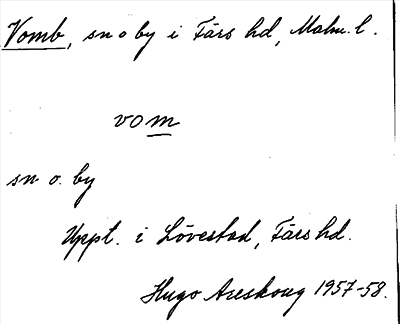 Vomb, sn o by i Färs hd, Malm. l.
vom
sn o. by
Uppt. i Lövestad, Färs hd.
Hugo Areskoug 1957-58.